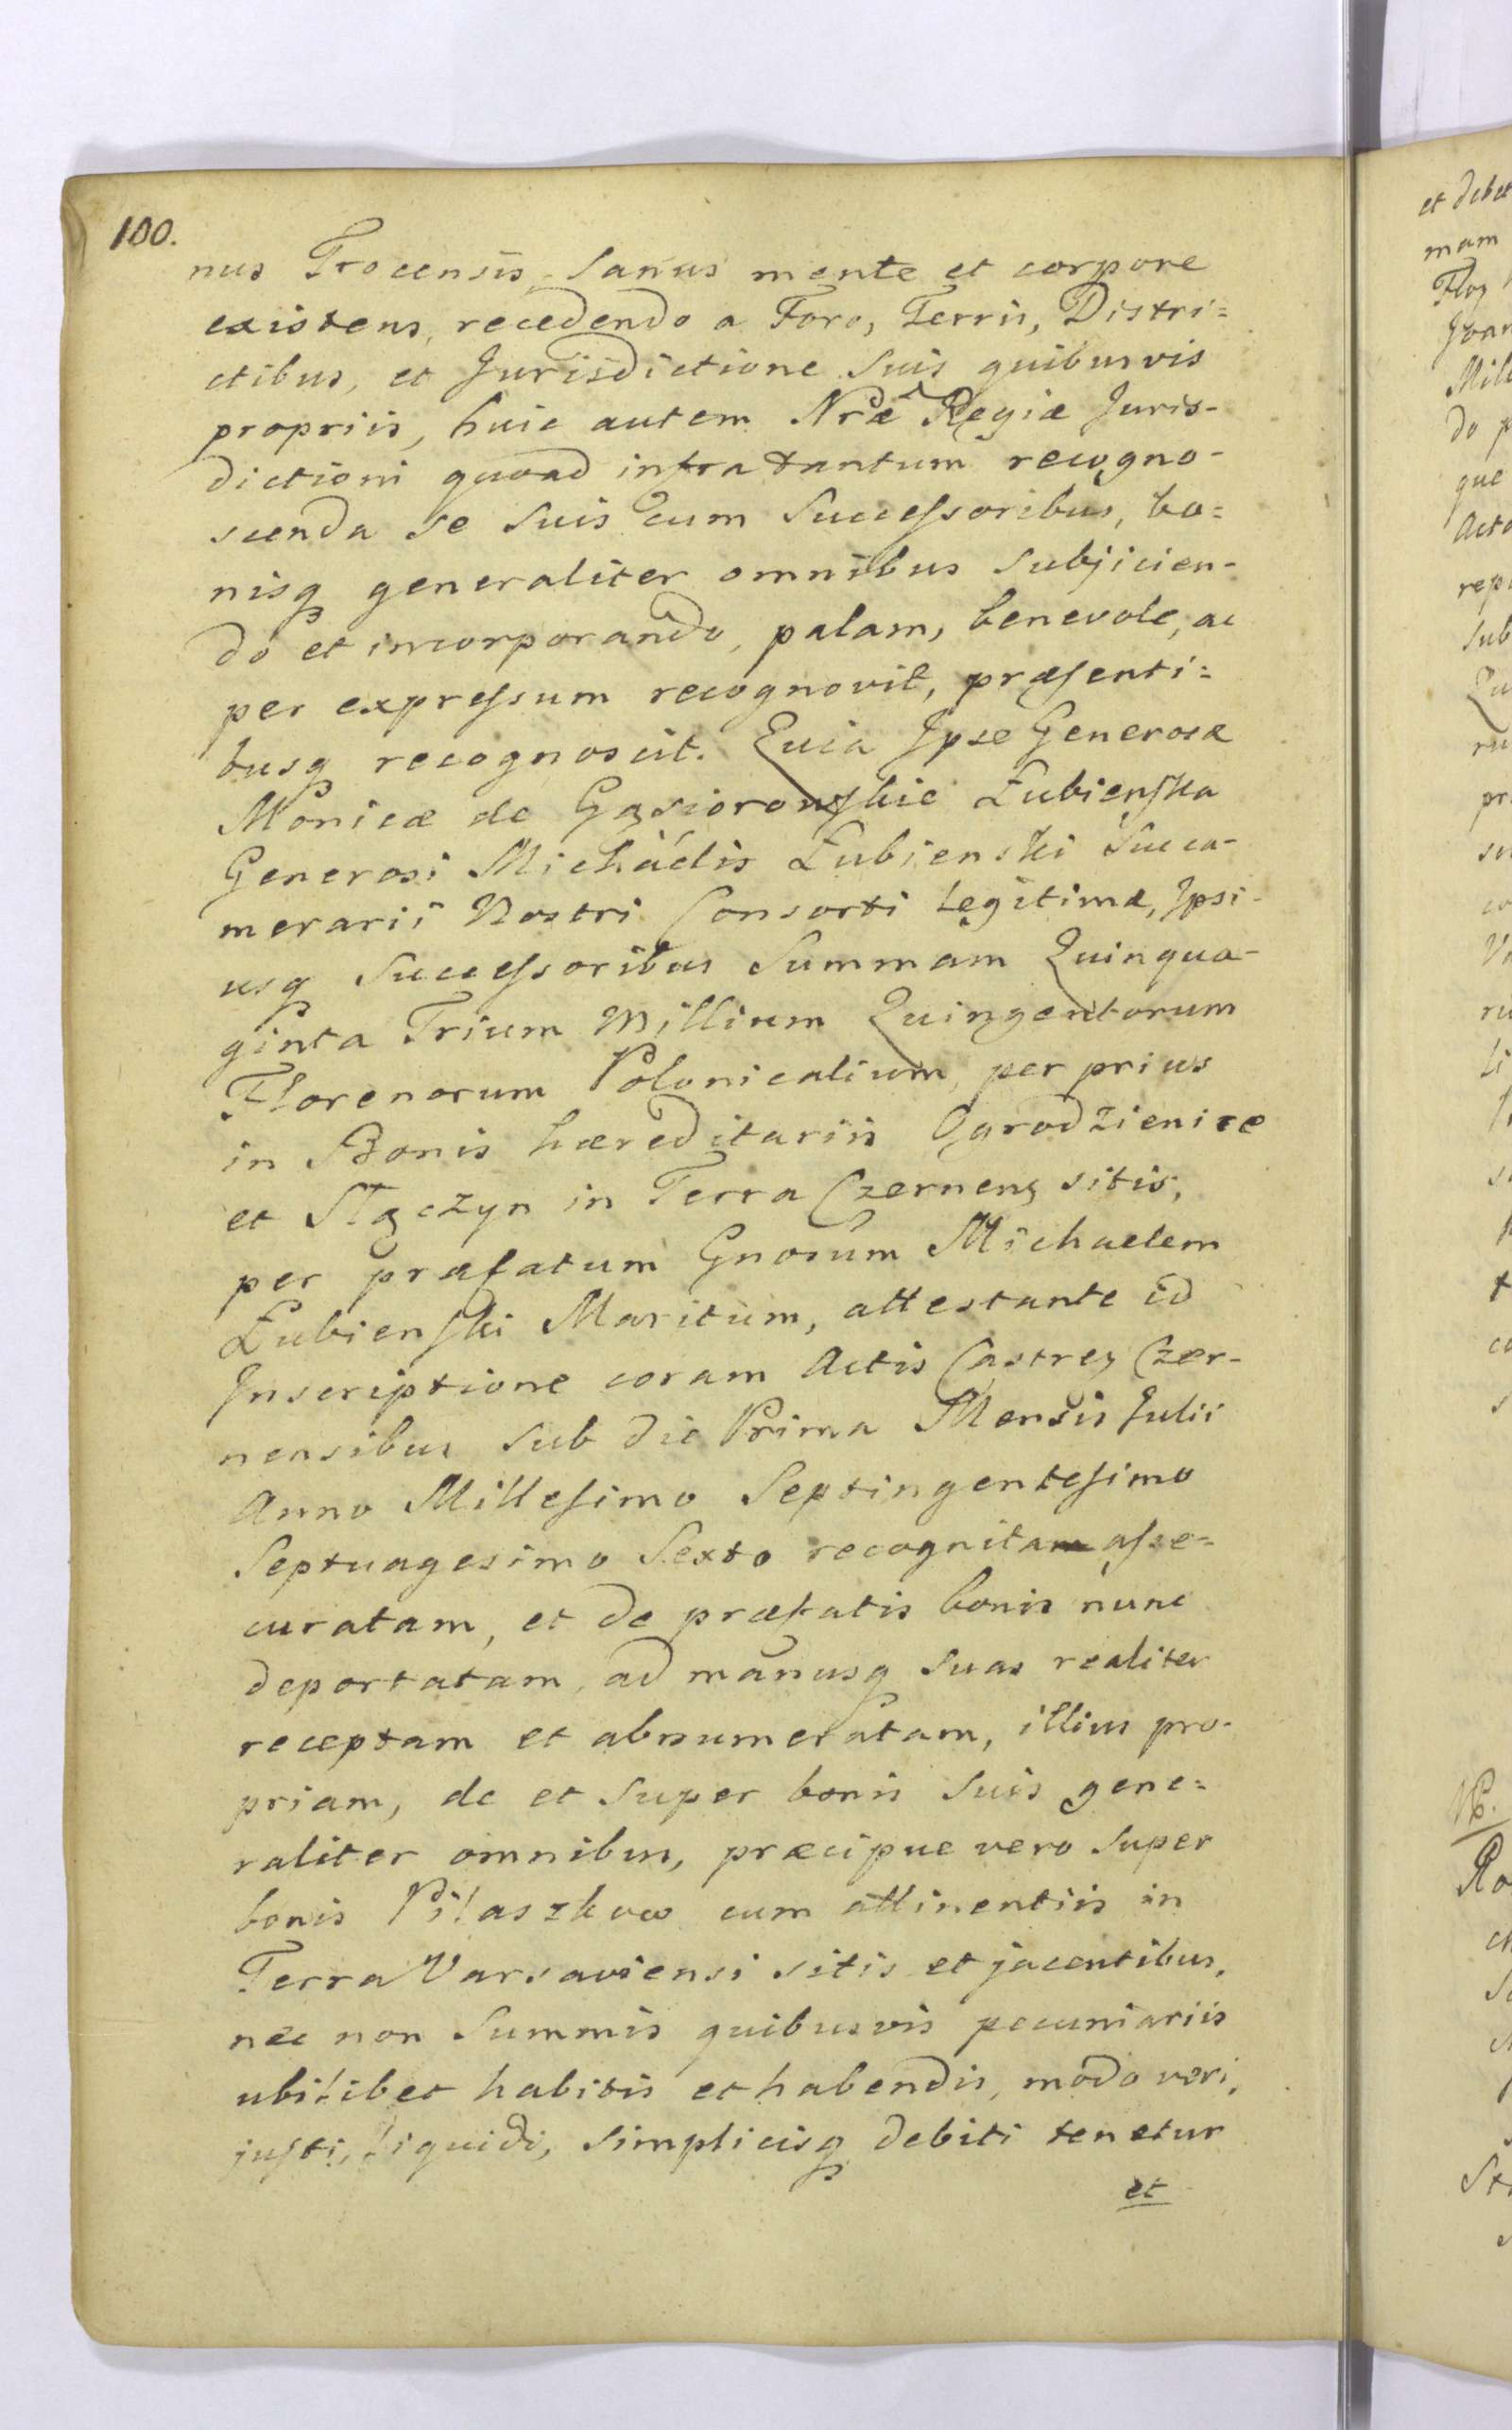 100.
nus Trocensis, Sanus mente et corpore
existens, recedendo a Foro, Terris, Distri=
ctibus, et Jurisdictione Suis quibusvis
propriis, huic autem Nrae Regiae Juris-
dictioni quoad infra tantum recogno-
scenda se suis cum Successoribus, bo=
nisq generaliter omnibus subjicien-
do et incorporando, palam, benevole, ac
per expressum recognovit, praesenti=
busq recognoscit. Quia Ipse Generosae
Monicae de Gąsiorowskie Łubienska
Generosi Michäelis Łubienski Succa-
merarii Nostri Consorti Legitimae, Ipsi-
usq Successoribus Summam Quinqua-
ginta Trium Millium Quingentorum
Florenorum Polonicalium, per prius
in Bonis haereditariis Ogrodzienice
et Stączyn in Terra Czernens sitis,
per praefatum Gnosum Michaelem
Łubienski Maritum, attestante id
Inscriptione coram Actis Castren Czer-
nensibus sub die Prima Mensis Julii
Anno Millesimo Septingentesimo
Septuagesimo Sexto recognitam asse-
curatam, et de praefatis bonis nunc
deportatam, ad manusq suas realiter
receptam et abnumeratam, illius pro-
priam, de et super bonis suis gene=
raliter omnibus, praecipue vero super
bonis Pilaszkow cum attinentiis in
Terra Varsaviensi sitis et jacentibus,
nec non Summis quibusvis pecuniariis
ubilibet habitis et habendis, modo veri,
justi, liquidi, simplicisq debiti tenetur
et
et debet
mam
do p
que
sub